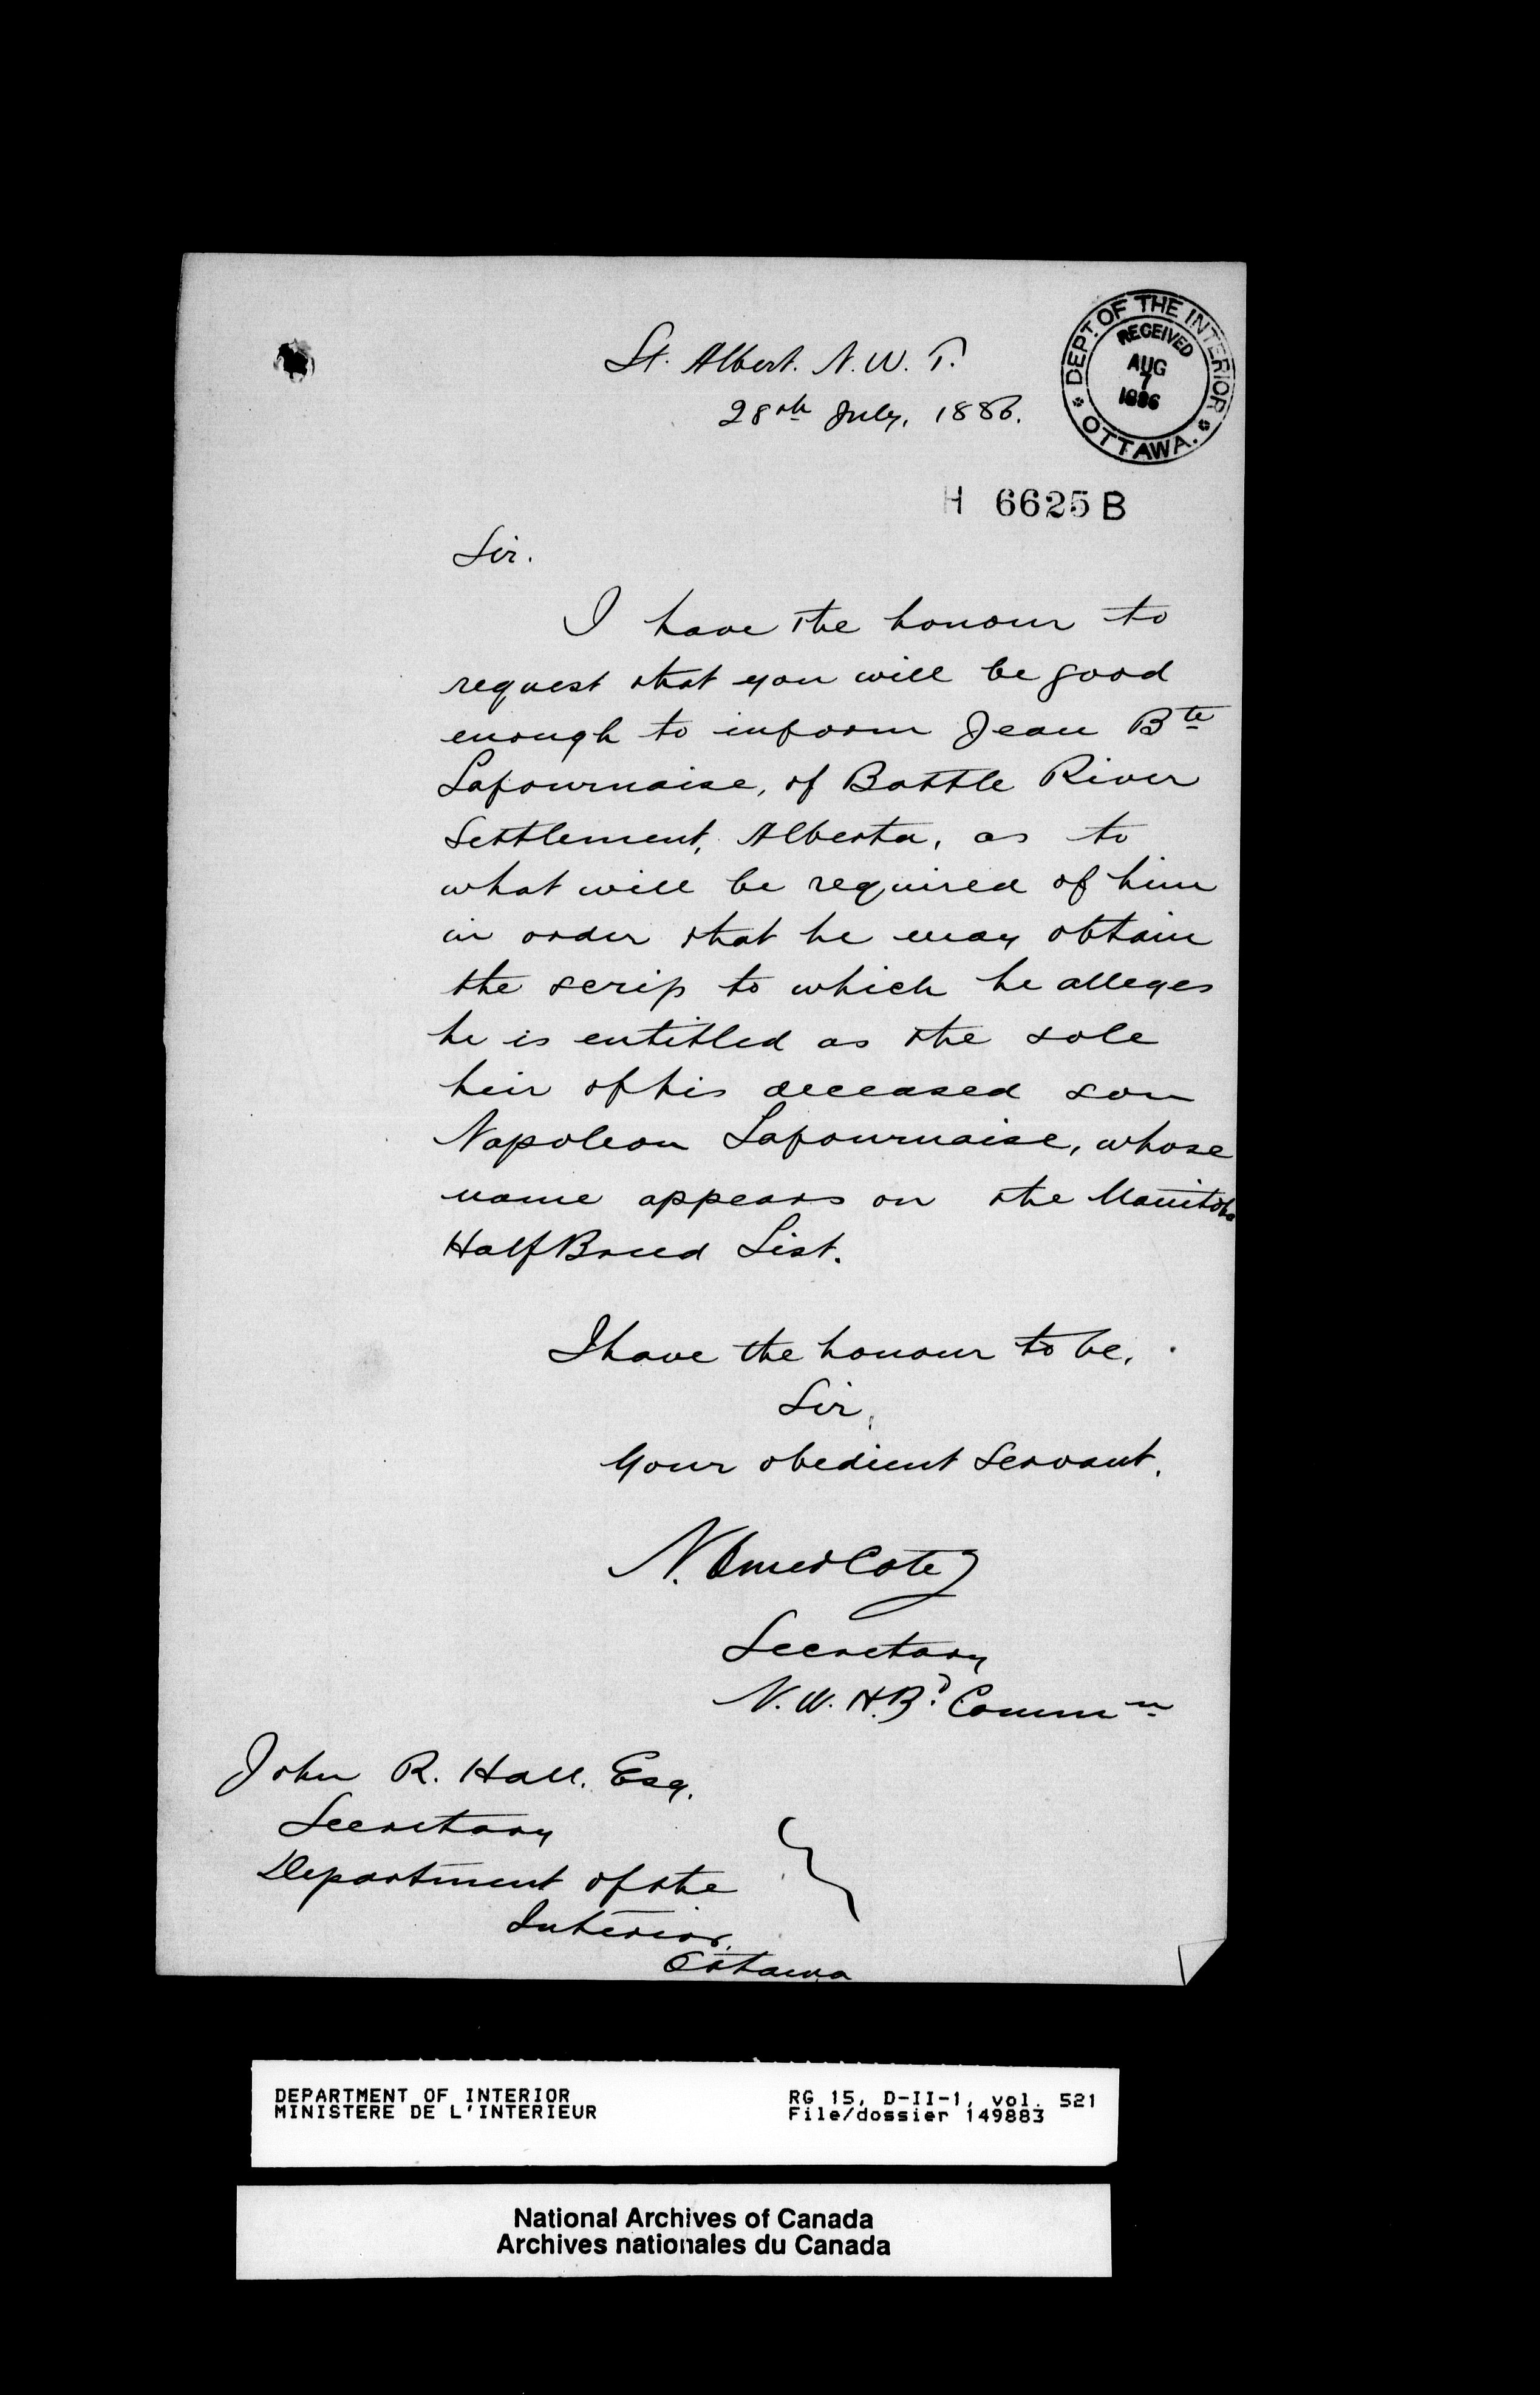 St. Albert. N. W. T.
28th July, 1886.
DEPT. OF THE INTERIOR
RECEIVED
AUG
7
1886
OTTAWA.
H 6625 B
Sir.
I have the honour to
request that you will be good
enough to inform Jean Bte
Lafournaise, of Battle River
Settlement, Alberta, as to
what will be required of him
in order that he may obtain
the scrip to which he alleges
he is entitled as the sole
heir of his deceased son
Napoleon Lafournaise, whose
name appears on the Manitoba
Half Breed List.
I have the honour to be,
Sir,
Your obedient servant.
N. Omer Coté
Secretary
N. W. H. Bd. Commn
John R. Hall. Esq.
Secretary
Department of the
Interior.
Ottawa
DEPARTMENT OF INTERIOR
MINISTERE DE L'INTERIEUR
RG 15, D-II-1, vol. 521
File/dossier 149883
National Archives of Canada
Archives nationales du Canada